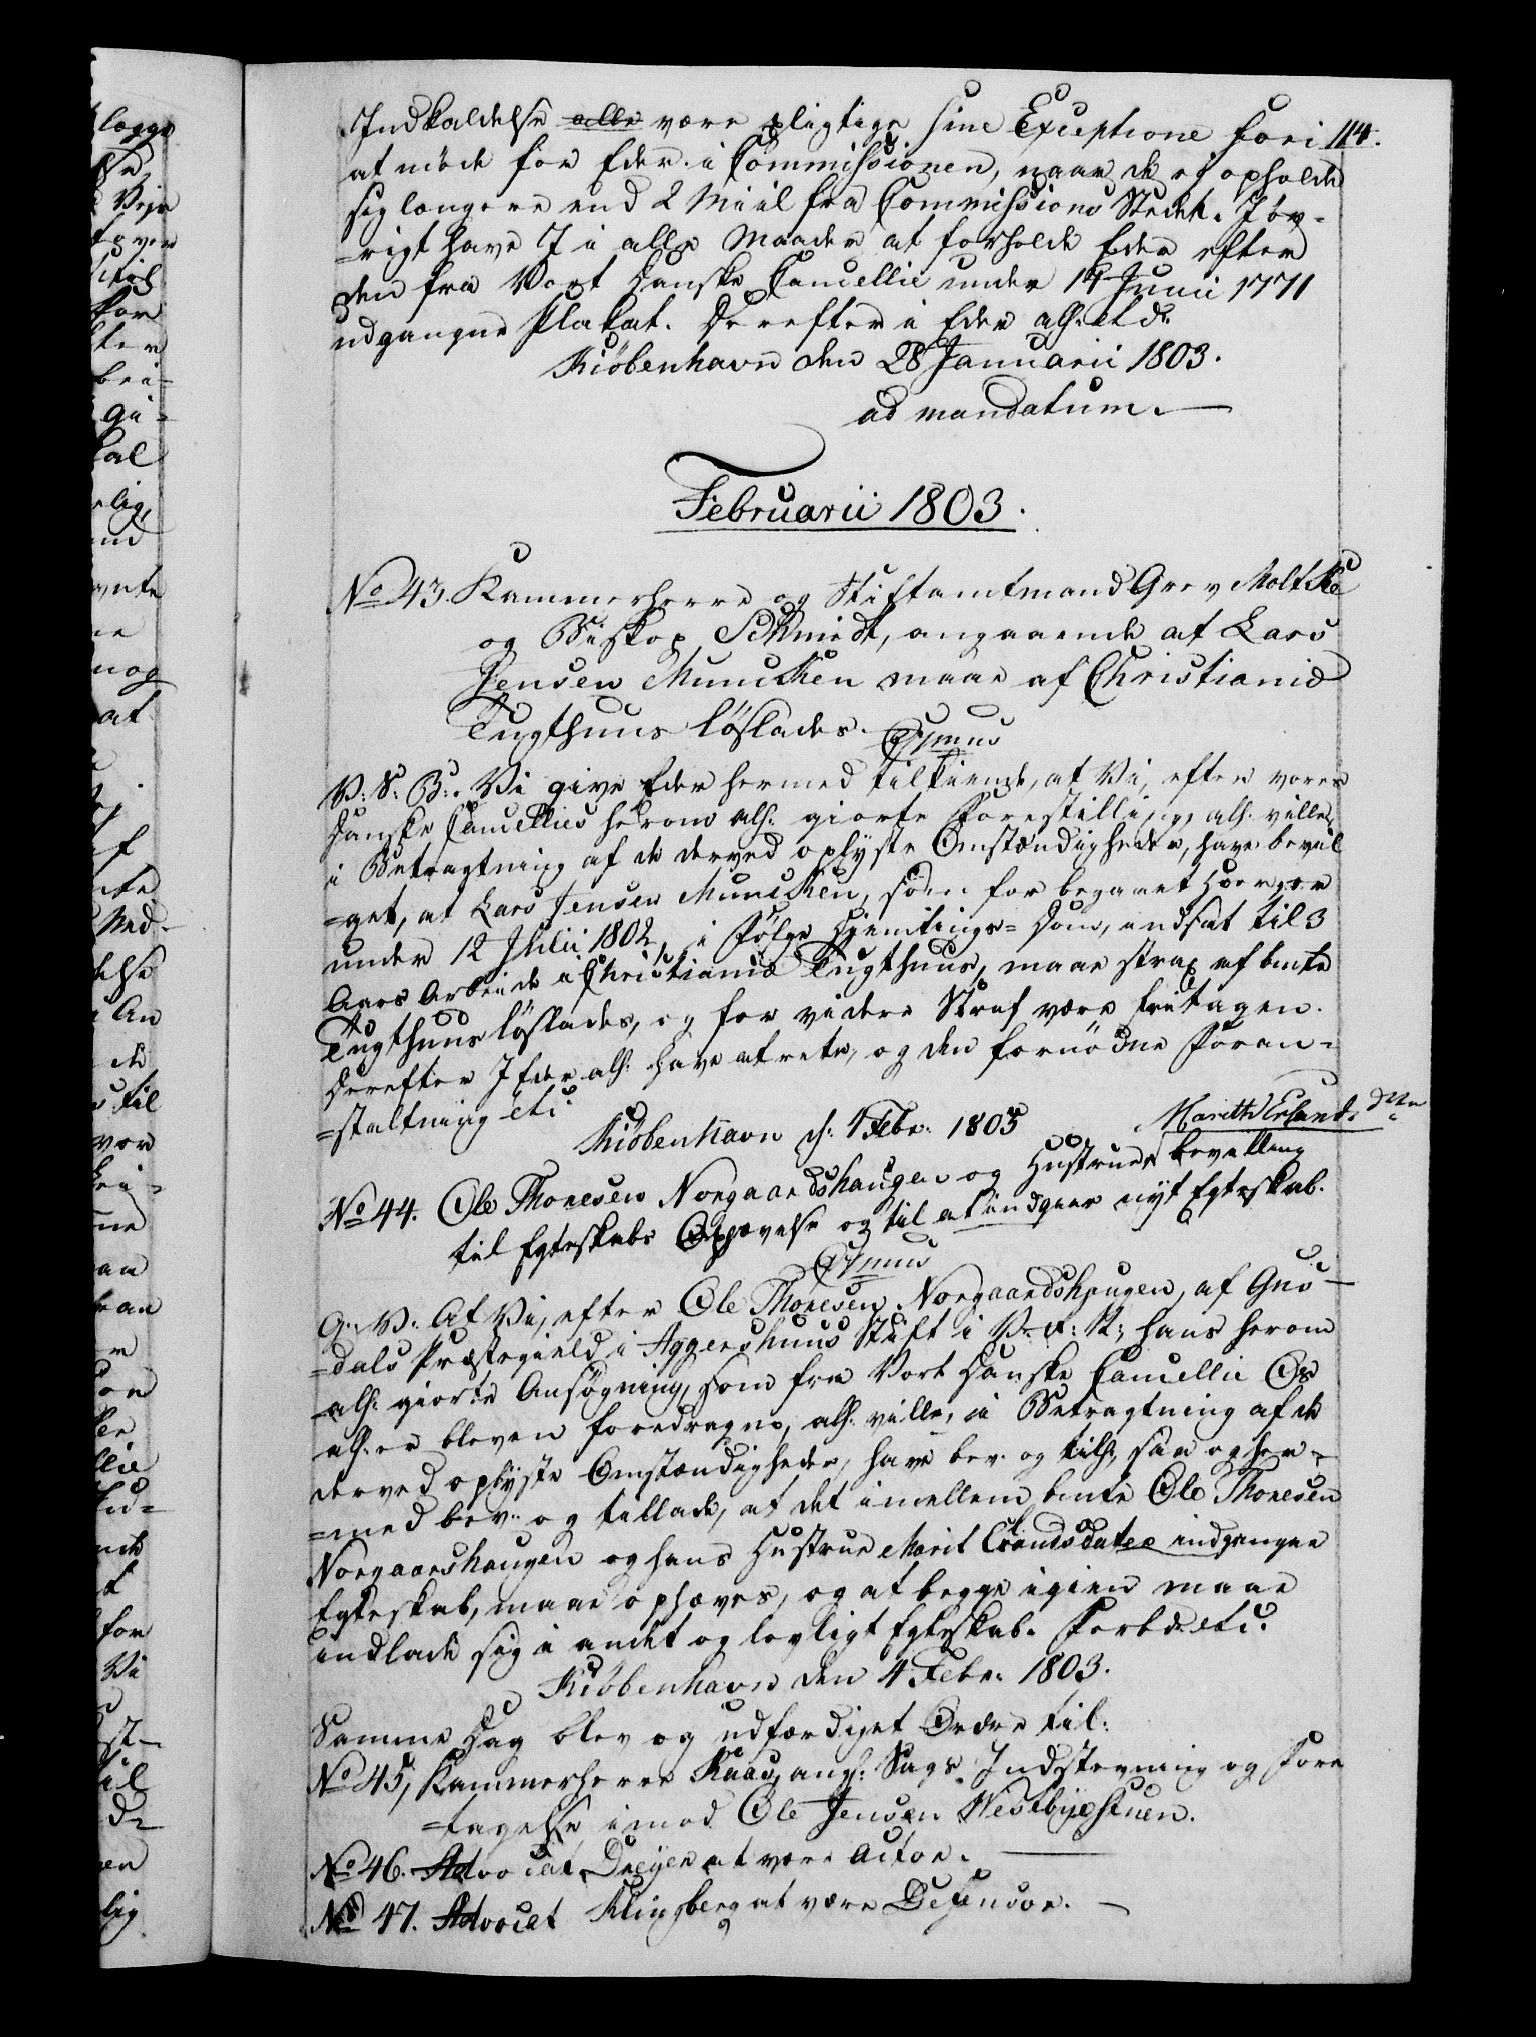 114.
Indkaldelse alle være pligtige sine Exceptione fori
at møde for Eder i Commissionen, naar de ej opholde
sig længere end 2 Miil fra Commissions Stedet. I øv-
=rigt have I i alle Maader at forholde Eder efter
den fra Vort Danske Cancellie under 14 Junii 1771
udgangne Plakat. Derefter i Eder alh: etc.
Kiöbenhavn den 28 Januarii 1803.
ad mandatum.
Februarii 1803.
No 43. Kammerherre og Stiftamtmand Grev Moltke
og Biskop Schmidt, angaaende at Lars
Jensen Muncken maae af Christiania
Tugthuus løslades.
V: S: B:. Vi give Eder hermed tilkiende, at Vi, efter vores
Danske Cancellies herom alh: giorte Forestilling, alh: ville,
i Betragtning af de derved oplyste Omstændigheder, have bevil
=get, at Lars Jensen Muncken, som for begaaet Hoer er
under 12 Julii 1802, i Følge Hiemtings= Dom, indsat til 3
Aars Arbeide i Christiania Tugthuus, maae strax af bmte
Tugthuus løslades, og for videre Straf være fritagen.
Derefter I Eder alh: have at rette, og den fornødne Foran=
=staltning etc:
Kiöbenhavn d: 4 Febr: 1803
Marith Erlands Dttr
No 44. Ole Thoresen Norgaardshaugen og Hustrues bevilling
til Egteskabs Ophævelse og til at indgaae nyt Egteskab.
G: V: At Vi, efter Ole Thoresen Norgaardshaugen, af Gus-
=dals Præstegield i Aggershuus Stift i V: R: N:, hans herom
alh: giorte Ansøgning, som fra Vort Danske Cancellie Os
alh: er bleven foredragne, alh: ville, i Betragtning af de
derved oplyste Omstændigheder, have bev: og tilh:, saa og her-
=med bev: og tillade, at det imellem bmte Ole Thoresen
Norgaardshaugen og hans Hustrue Marit Erlandsdatter indgangne
Egteskab, maae ophæves, og at begge igien maae
indlade sig i andet og lovligt Egteskab. Forbd: etc:
Kiöbenhavn den 4 Febr: 1803.
Samme Dag blev og udfærdiget Ordre til:
No 45, Kammerherre Kaas, angl: Sags Indstevning og Fore
=tagelse imod Ole Jensen Westbyestuen.
No 46. Advocat Dreyer at være Actor.
No 47. Advocat Klingberg at være Defensor.